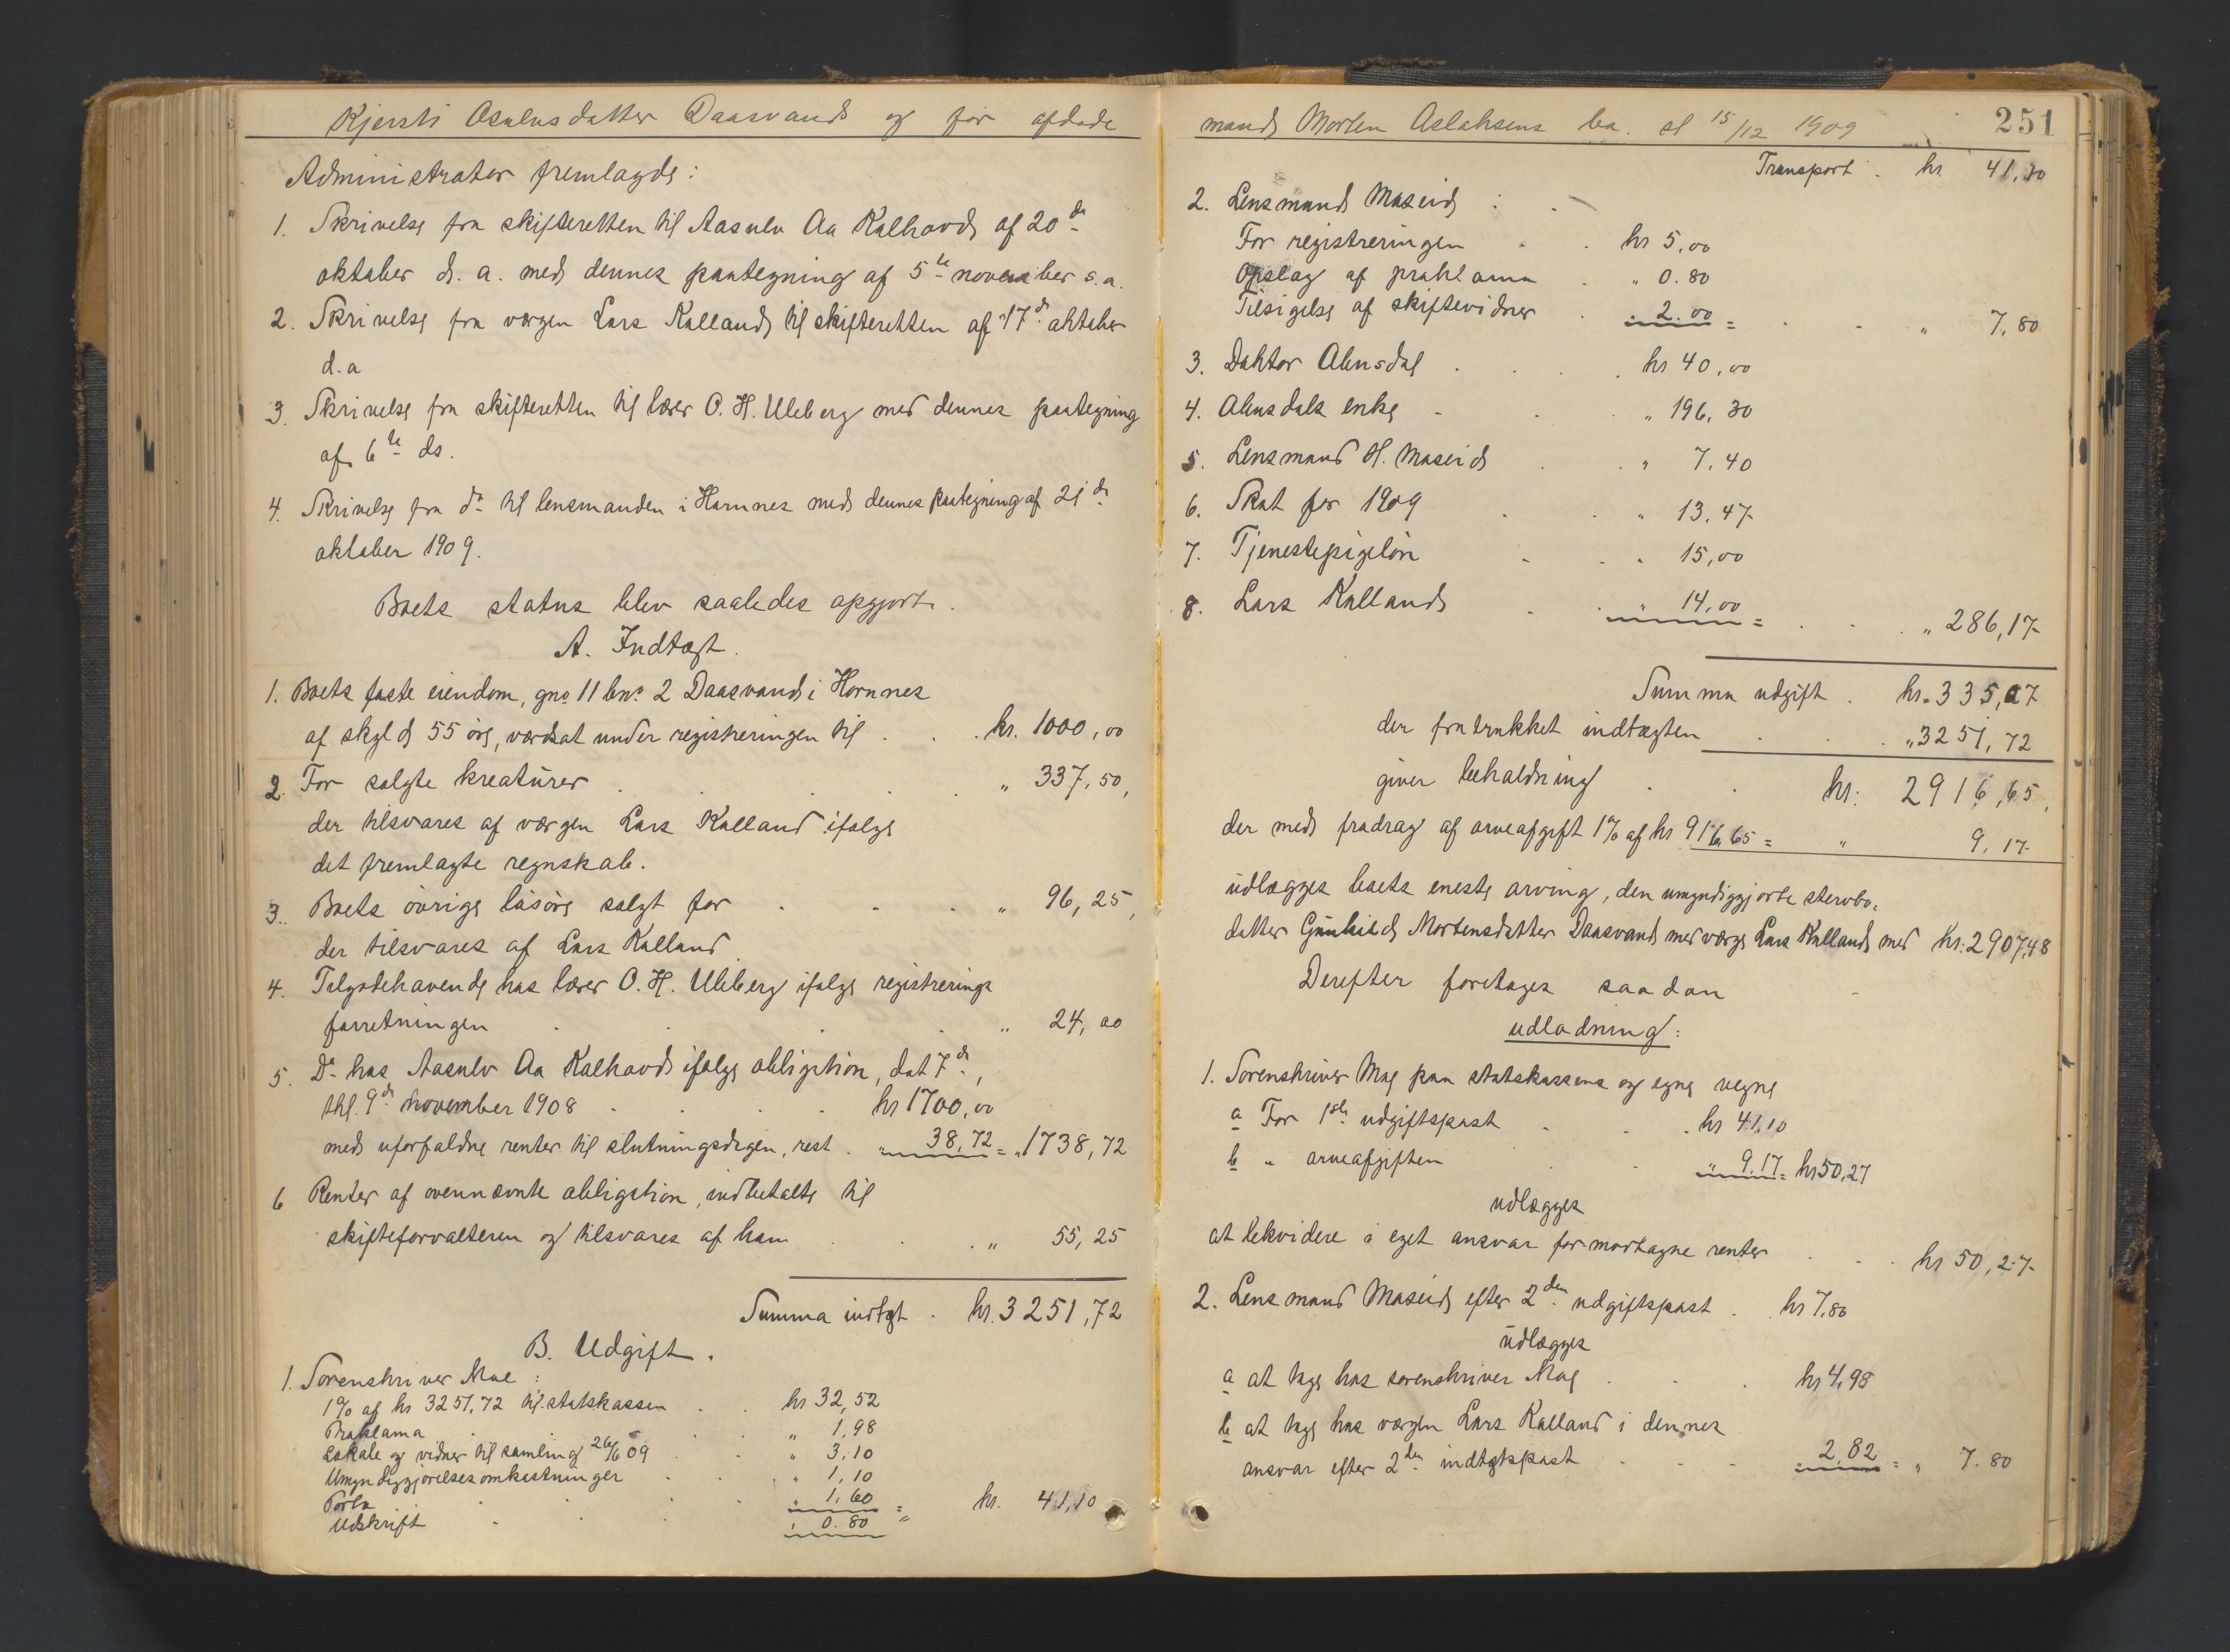 Kjersti Osulvsdatter Daasvand og før afdøde
Administrator fremlagde:
1. Skrivelse fra skifteretten til Aasulv Aa Kalhovd af 20de
oktober d. a. med dennes paategning af 5te november s.a.
2. Skrivelse fra værgen Lars Kalland til skifteretten af 17de oktober
d.a
3. Skrivelse fra skifteretten til lærer O. H. Uleberg med dennes paategning
af 6te ds.
4. Skrivelse fra do til lensmanden i Hornnes med dennes paategning af 21de
oktober 1909.
Boets status blev saaledes opgjort.
A. Indtægt.
1. Boets faste eiendom, gno 11 bno 2 Daasvand i Hornnes
af skyld 55 øre, værdsat under registreringen til . . . kr. 1000,00
2. For solgte kreaturer . . . . " 337,50,
der tilsvares af værgen Lars Kalland ifølge
det fremlagte regnskab.
3. Boets øvrige løsøre solgt for . . . " 96,25,
der tilsvares af Lars Kalland
4. Tilgodehavende hos lærer O. H. Uleberg ifølge registrerings
forretningen . . . . " 24,00
5. Do hos Aasulv Aa Kalhovd ifølge obligation, dat 7de,
thl. 9de november 1908 . . . . kr 1700,00
med uforfaldne renter til slutningsdagen, rest . " 38,72 = " 1738,72
6 Renter af ovennævnte obligation, indbetalte til
skifteforvalteren og tilsvares af ham . . . " 55,25
Summa indtægt . kr. 3251,72
B. Udgift.
1. Sorenskriver Moe :
1% af kr 3251,72 til statskassen . . kr 32,52
Proklama . . . " 1,98
Lokale og vidner til samling 26/6 09 . . " 3,10
Umyndiggjørelsesomkostninger . . . " 1,10
Porto . . . . " 1,60 = kr. 41,10
Udskrift . . . " 0.80 "
mand Morten Aslaksens bo. sl 15/12 1909 251
Transport . kr 41,10
2. Lensmand Maseid : .
For registreringen . . kr 5,00
Opslag af proklama . " 0.80
Tilsigelse af skiftevidner . " 2.00 = . . " 7,80
3. Doktor Alnsdal . . . . kr 40,00
4. Alnsdals enke . . . " 196,30
5. Lensmand H. Maseid . . " 7,40
6. Skat for 1909 . . " 13,47
7. Tjenestepigeløn . . " 15,00
8. Lars Kalland . . " 14,00 = . . . " 286,17
Summa udgift . kr. 335,07
der fratrukket indtægten . . . " 3251,72
giver beholdning . . kr: 2916,65,
der med fradrag af arveafgift 1% af kr 916,65 = " 9,17
udlægges boets eneste arving, den umyndiggjorte stervbo-
datter Gunhild Mortensdatter Daasvand med værge Lars Kalland med kr: 2907,48
Derefter foretages saadan
udlodning:
1. Sorenskriver Moe paa statskassens og egne vegne
a For 1ste udgiftspost . . . kr 41,10
b " arveafgiften . . " 9.17 = kr 50,27
udlægges
at likvidere i eget ansvar for modtagne renter . . . kr 50,27
2. Lensmand Maseid efter 2den udgiftspost . . kr 7,80
udlægges
a at tage hos sorenskriver Moe . . . kr 4,98
b at tage hos værgen Lars Kalland i dennes
ansvar efter 2den indtægtspost . . . " 2,82 = " 7.80